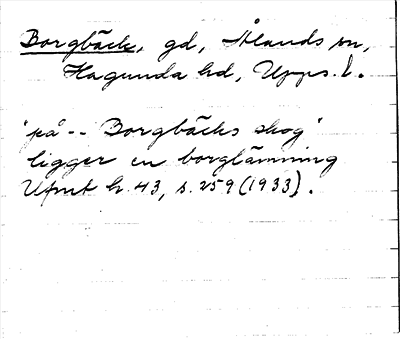 Borgbäck, gd, Ålands sn,
Hagunda hd, Upps. l.
"på -- Borgbäcks skog"
ligger en borglämning
Ufmt h. 43, s. 259 (1933).